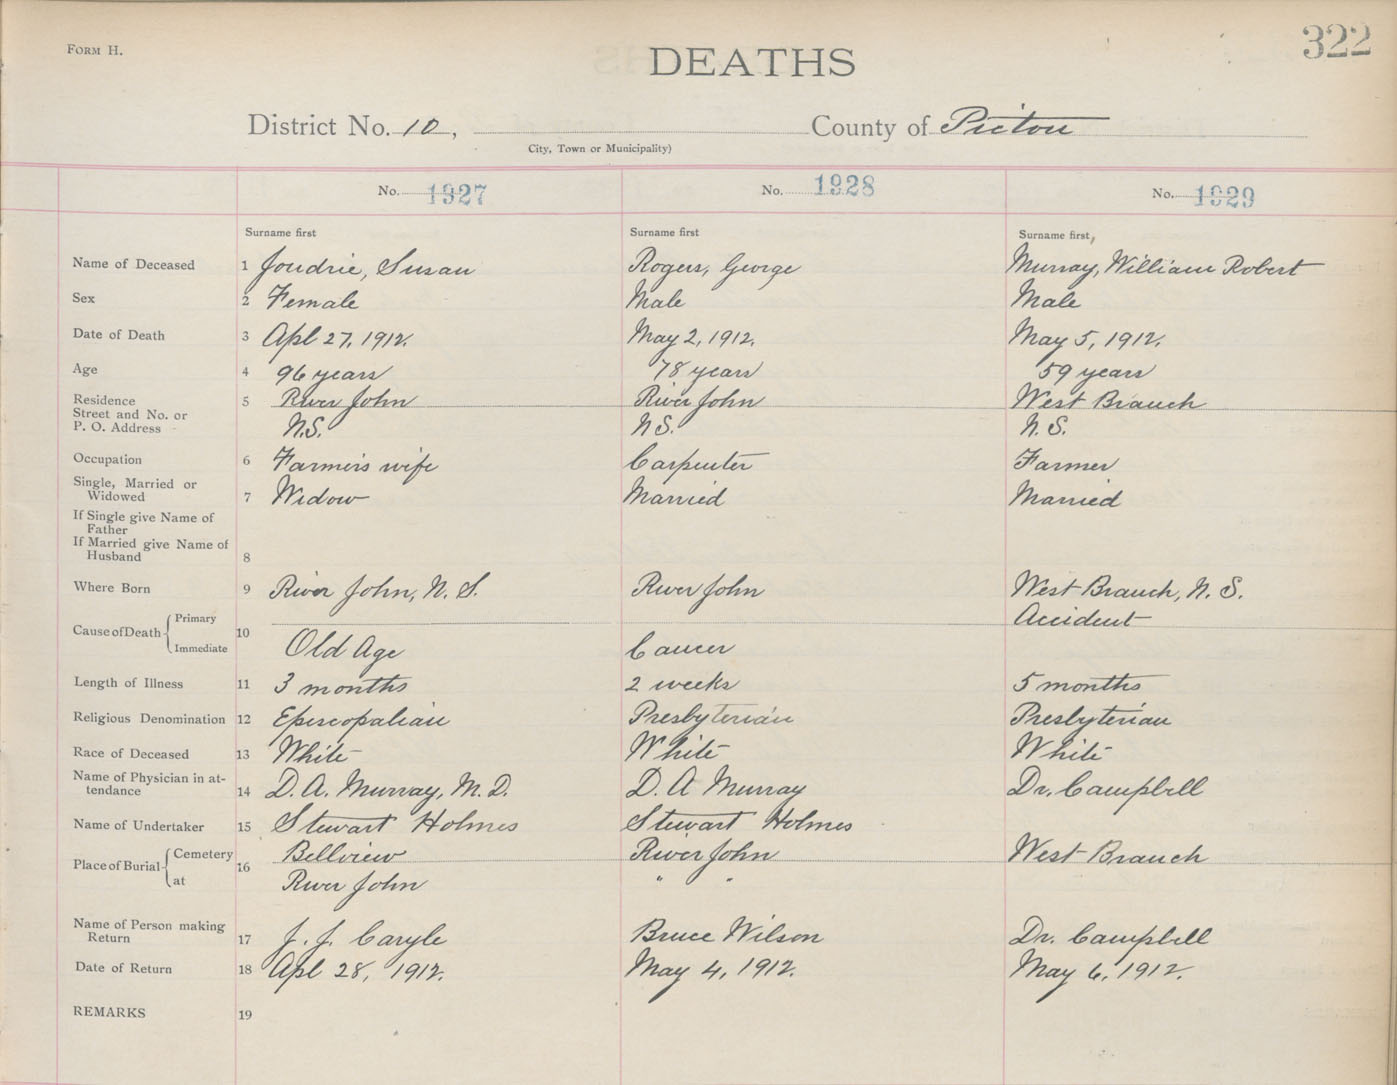 FORM H.
DEATHS
322
District No. 10, County of Pictou
City, Town or Municipality)
No. 1927 No. 1928 No. 1929
Surname first Surname first Surname first,
Name of Deceased 1 Joudrie, Susan Rogers, George Murray, William Robert
Sex 2 Female Male Male
Date of Death 3 Apl 27, 1912. May 2, 1912. May 5, 1912.
Age 4 96 years 78 years 59 years
Residence 5 River John River John West Branch
Street and No. or
P. O. Address N.S. N S. N. S.
Occupation 6 Farmer's wife Carpenter Farmer
Single, Married or
Widowed 7 Widow Married Married
If Single give Name of
Father
If Married give Name of
Husband 8
Where Born 9 River John, N. S. River John West Branch, N. S.
Cause of Death Primary 10 Accident
Immediate Old Age Cancer
Length of Illness 11 3 months 2 weeks 5 months
Religious Denomination 12 Episcopalian Presbyterian Presbyterian
Race of Deceased 13 White White White
Name of Physician in at-
tendance 14 D. A. Murray, M. D. D. A Murray Dr. Campbell
Name of Undertaker 15 Stewart Holmes Stewart Holmes
Place of Burial Cemetery 16 Bellview River John West Branch
at River John " "
Name of Person making
Return 17 J. J. Caryle Bruce Wilson Dr. Campbell
Date of Return 18 Apl 28, 1912. May 4, 1912. May 6, 1912.
REMARKS 19